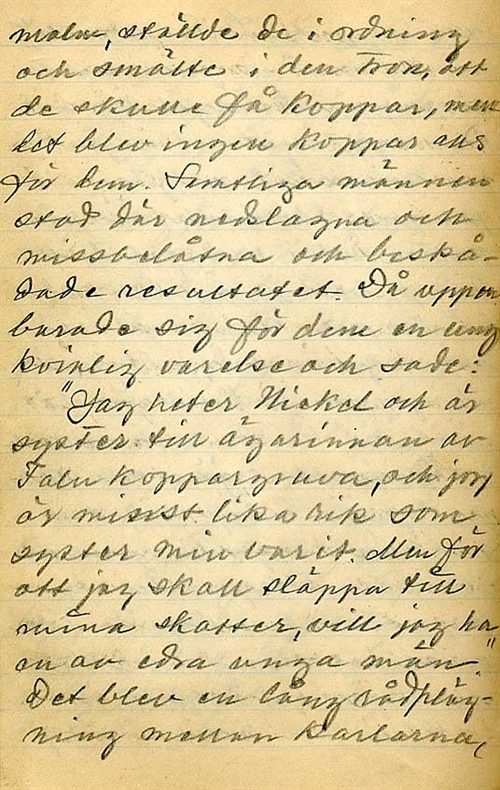 malm, ställde de i ordning
och smälte i den tron, att
de skulle få koppar, men
det blev ingen koppar alls
för dem. Samtliga männen
stod där nedslagna och
missbelåtna och beskå-
dade resultatet. Då uppen
barade sig för dem en ung
kvinlig varelse och sade:
"Jag heter Nickel och är
syster till ägarinnan av
Falu koppargruva, och jag
är minst lika rik som
syster min varit. Men för
att jag skall släppa till
mina skatter, vill jag ha
en av edra unga män"
Det blev en lång rådpläg-
ning mellan karlarna,